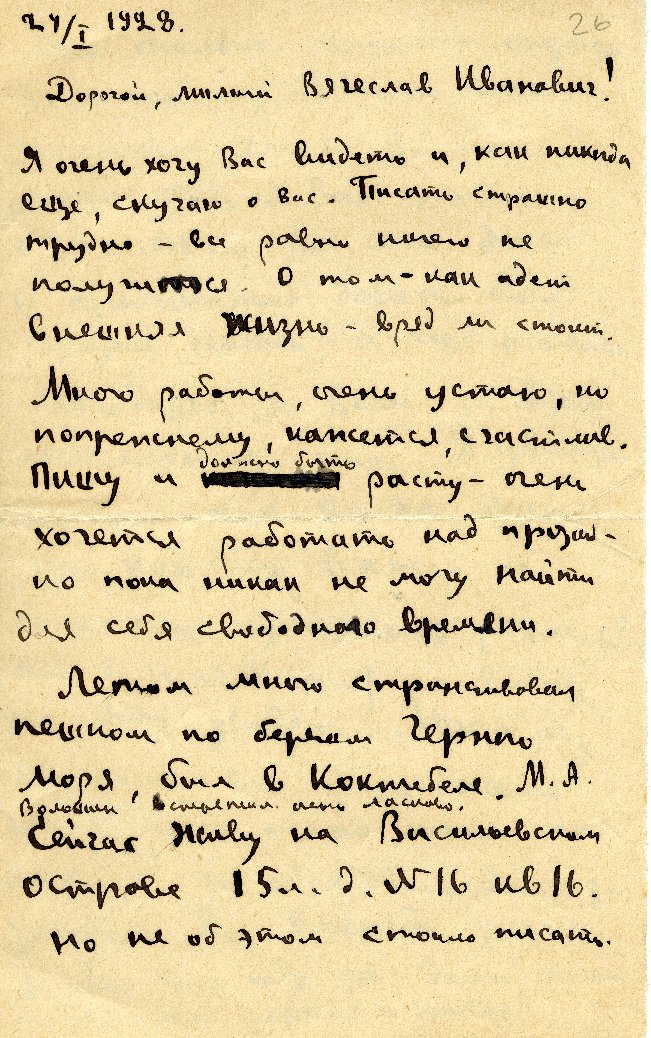 24/I 1928.
26
Дорогой, милый Вячеслав Иванович!
Я очень хочу Вас видеть и, как никогда
еще, скучаю о Вас. Писать страшно
трудно – все равно ничего не
получится. О том – как идет
внешняя жизнь – вряд ли стоит.
Много работы, очень устаю, но
попрежнему, кажется, счастлив.
должно быть
Пишу и расту – очень
хочется работать над прозой –
но пока никак не могу найти
для себя свободного времени.
Летом много странствовал
пешком по берегам Черного
моря, был в Коктебеле. М. А.
Волошин встретил очень ласково.
Сейчас живу на Васильевском
Острове 15 л. д. № 16 кв 16.
Но не об этом стоило писать.